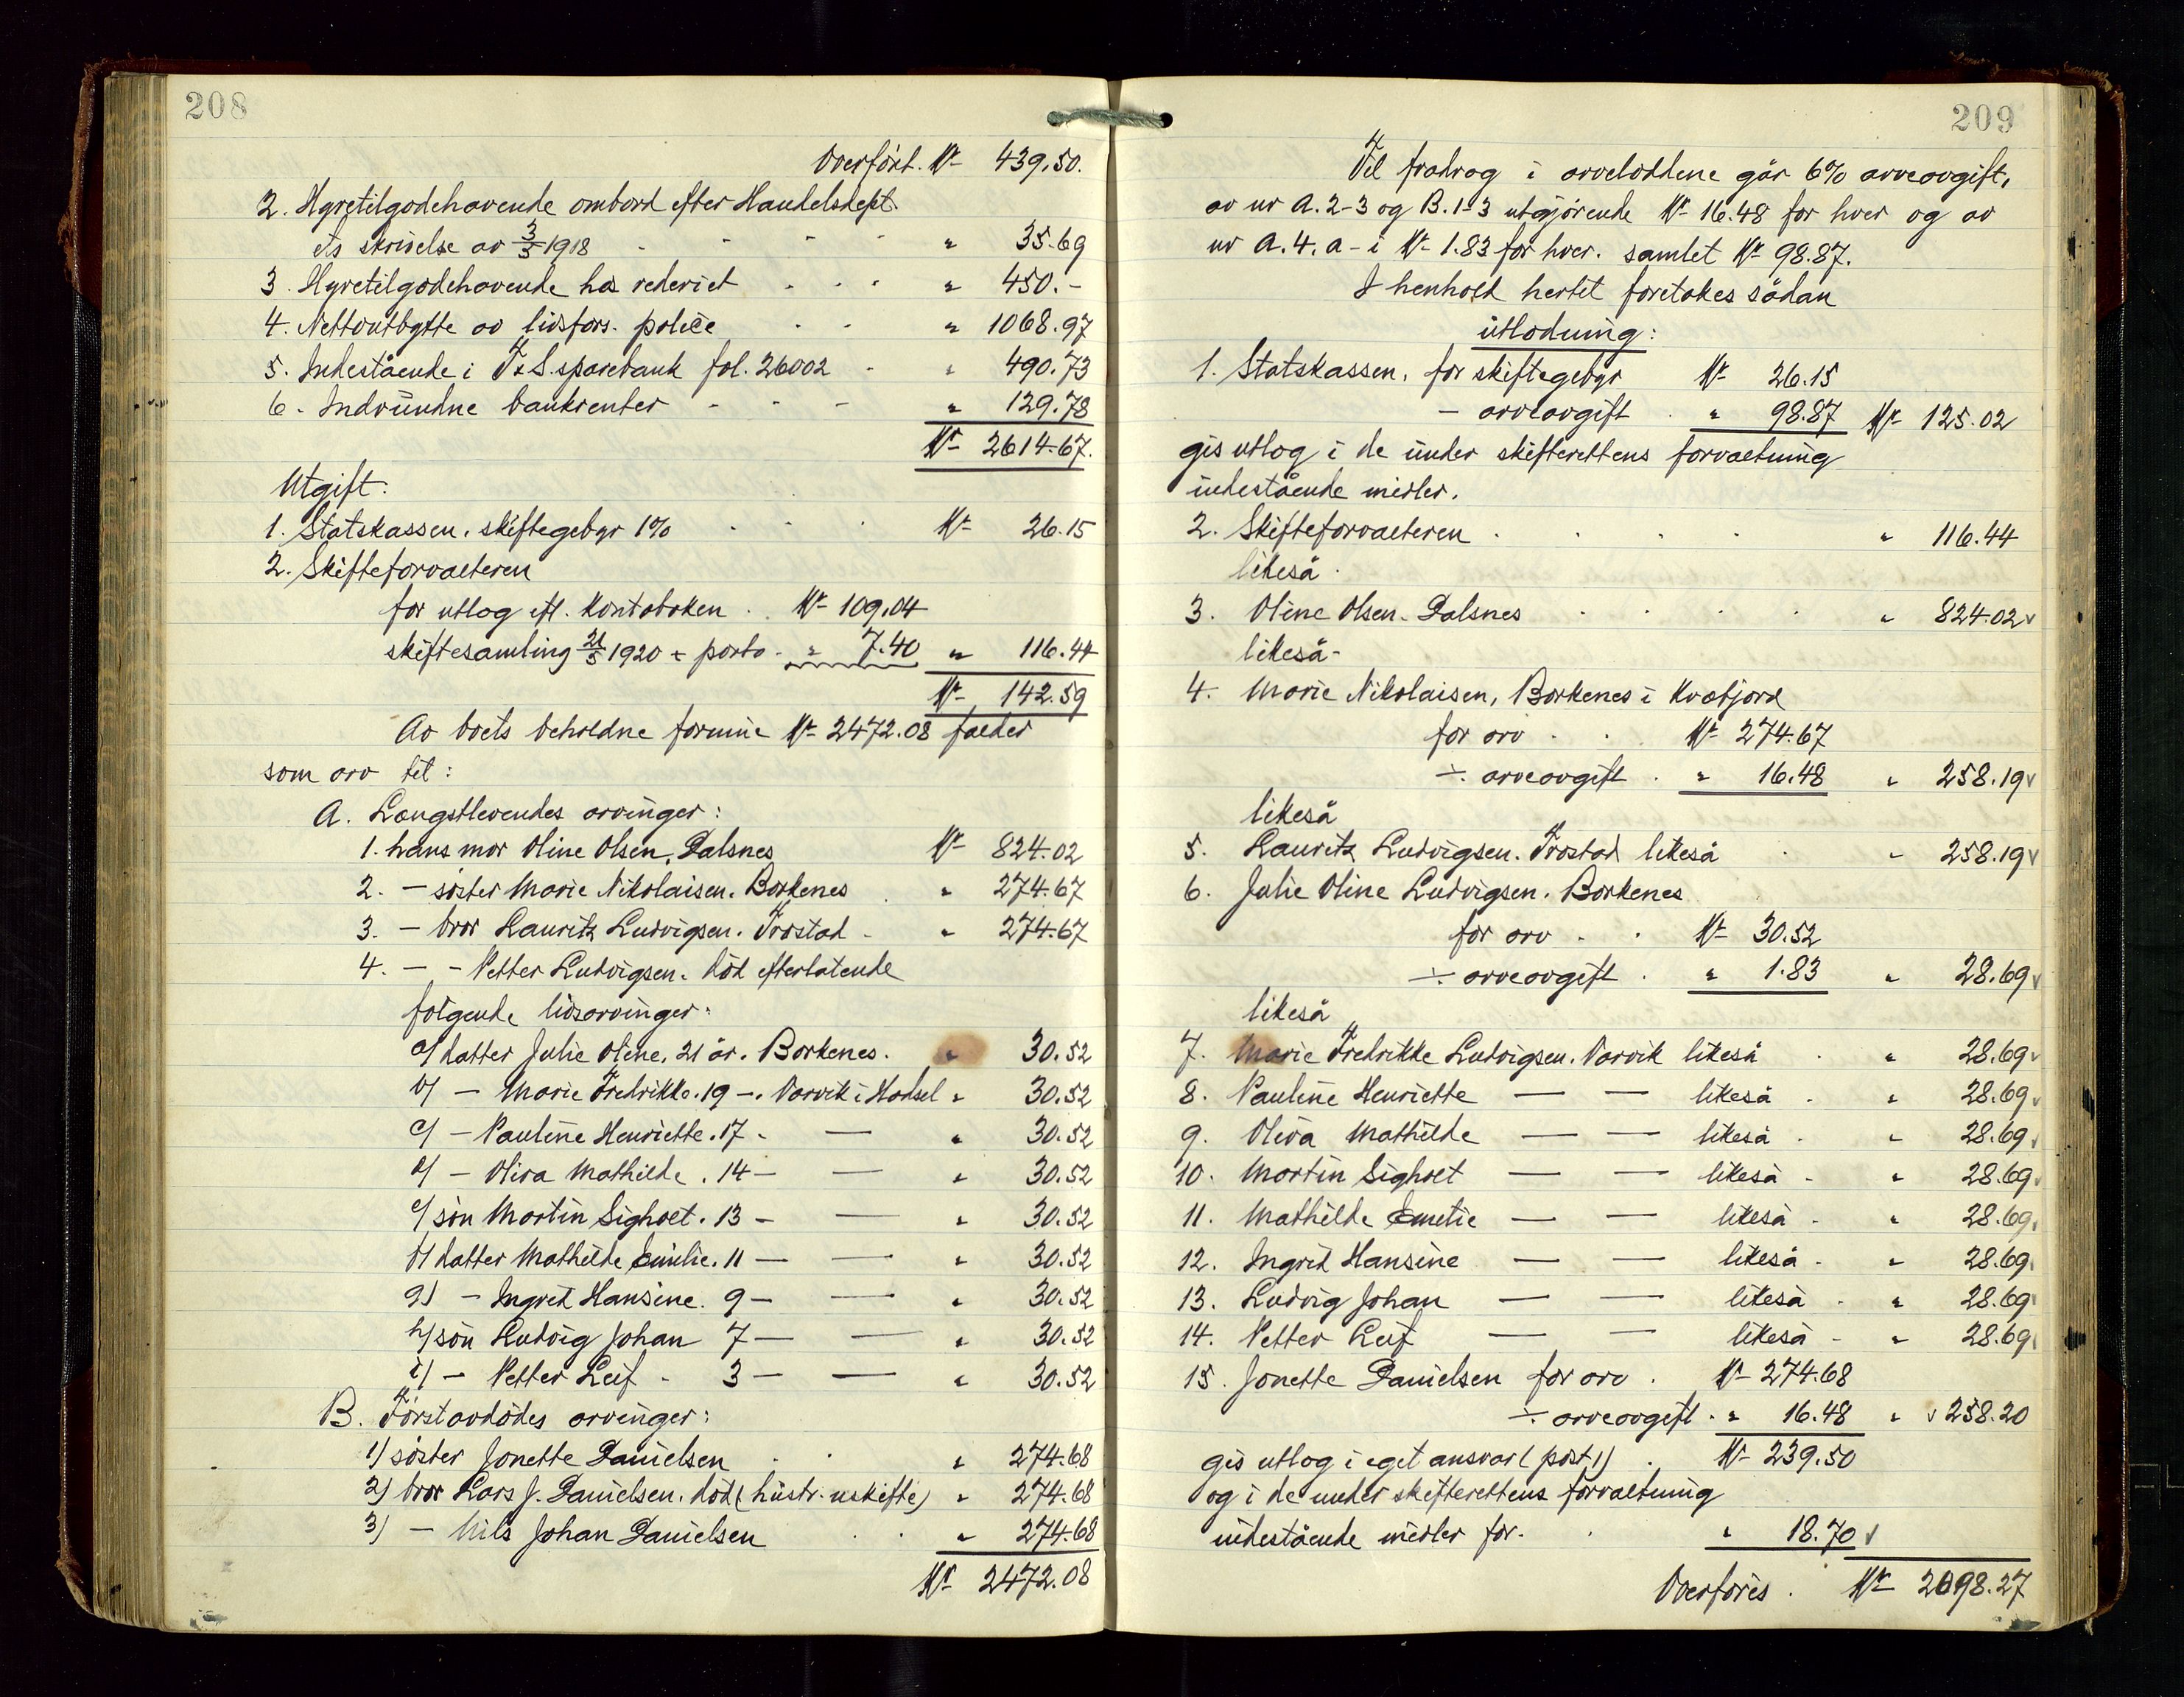 208
Overført. Kr 439.50.
2. Hyretilgodehavende ombord efter Handelsdept.
ets skrivelse av 3/5 1918 - - - - " 35.69
3. Hyretilgodehavende hos rederiet - - - " 450.-
4. Nettoutbytte av livsfors. police - - " 1068.97
5. Indestående i T&S. sparebank fol. 26002 - " 490.73
6. Indvundne bankrenter - - - " 129.78
Kr 2614.67.
Utgift.
1. Statskassen, skiftegebyr 1% . . . Kr 26.15
2. Skifteforvalteren
for utlæg efl. Kontoboken . Kr 109.04
skiftesamling 21/5 1920 + porto - " 7.40 " 116.44
Kr 142.59
Av boets beholdne formue Kr 2472.08 falder
som arv til:
A. Længstlevendes arvinger:
1. hans mor Oline Olsen, Dalsnes Kr 824.02
2. - søster Marie Nikolaisen. Borkenes . " 274.67
3. - bror Lauritz Ludvigsen. Trøstad - " 274.67
4. - - Petter Ludvigsen. død efterlatende
følgende livsarvinger:
a) datter Julie Oline, 21 år. Borkenes. " 30.52
b) - Marie Fredrikke. 19 -. Vorvik i Hadsel " 30.52
c) - Pauline Henriette. 17 - — " 30.52
d) - Oliva Mathilde . 14 - — " 30.52
e) søn Martin Sighvel. 13 - — " 30.52
f) datter Mathilde Emilie. 11 — — " 30.52
g) - Ingrid Hansine. 9 - — " 30.52
h) søn Ludvig Johan 7 — — " 30.52
i) - Petter Leif - 3 — — " 30.52
B. Førstavdødes arvinger:
1) søster Jonette Danielsen . . " 274.68
2) bror Lars J. Danielsen. død (hustr. uskifte) " 274.68
3) - Nils Johan Danielsen . . " 274.68
Kr 2472.08
209
Til fradrag i arveloddene går 6% arveavgift,
av nr A. 2-3 og B. 1-3 utgjørende Kr 16.48 for hver og av
nr A. 4. a - i Kr 1.83 for hver. samlet Kr 98.87.
I henhold hertil foretakes sådan
utlodning:
1. Statskassen, for skiftegebyr Kr 26.15
- arveavgift . " 98.87 Kr 125.02
gis utlæg i de under skifterettens forvaltning
indestående midler.
2. Skifteforvalteren . . . . " 116.44
likeså .
3. Oline Olsen. Dalsnes . . . . " 824.02 v
likeså -
4. Marie Nikolaisen, Borkenes i Kvæfjord
for arv . . Kr 274.67
÷ arveavgift . " 16.48 " 258.19 v
likeså
5. Lauritz Ludvigsen. Trøstad likeså . " 258.19 v
6. Julie Oline Ludvigsen. Borkenes
for arv . . Kr 30.52
÷ arveavgift . " 1.83 " 28.69 v
likeså
7. Marie Fredrikke Ludvigsen. Vorvik likeså . " 28.69 v
8. Pauline Henriette — — likeså . " 28.69 v
9. Oliva Mathilde — — likeså . " 28.69 v
10. Martin Sighvel — — likeså - " 28.69 v
11. Mathilde Emelie — — likeså . " 28.69 v
12. Ingrid Hansine — — likeså - " 28.69 v
13. Ludvig Johan — — likeså . " 28.69 v
14. Petter Leif — — likeså - " 28.69 v
15. Jonette Danielsen for arv . Kr 274.68
÷ arveavgift . " 16.48 " v 258.20
gis utlæg i eget ansvar (post 1) . Kr 239.50
og i de under skifterettens forvaltning
indestående midler for . . " 18.70 v
Overføres . Kr 2098.27